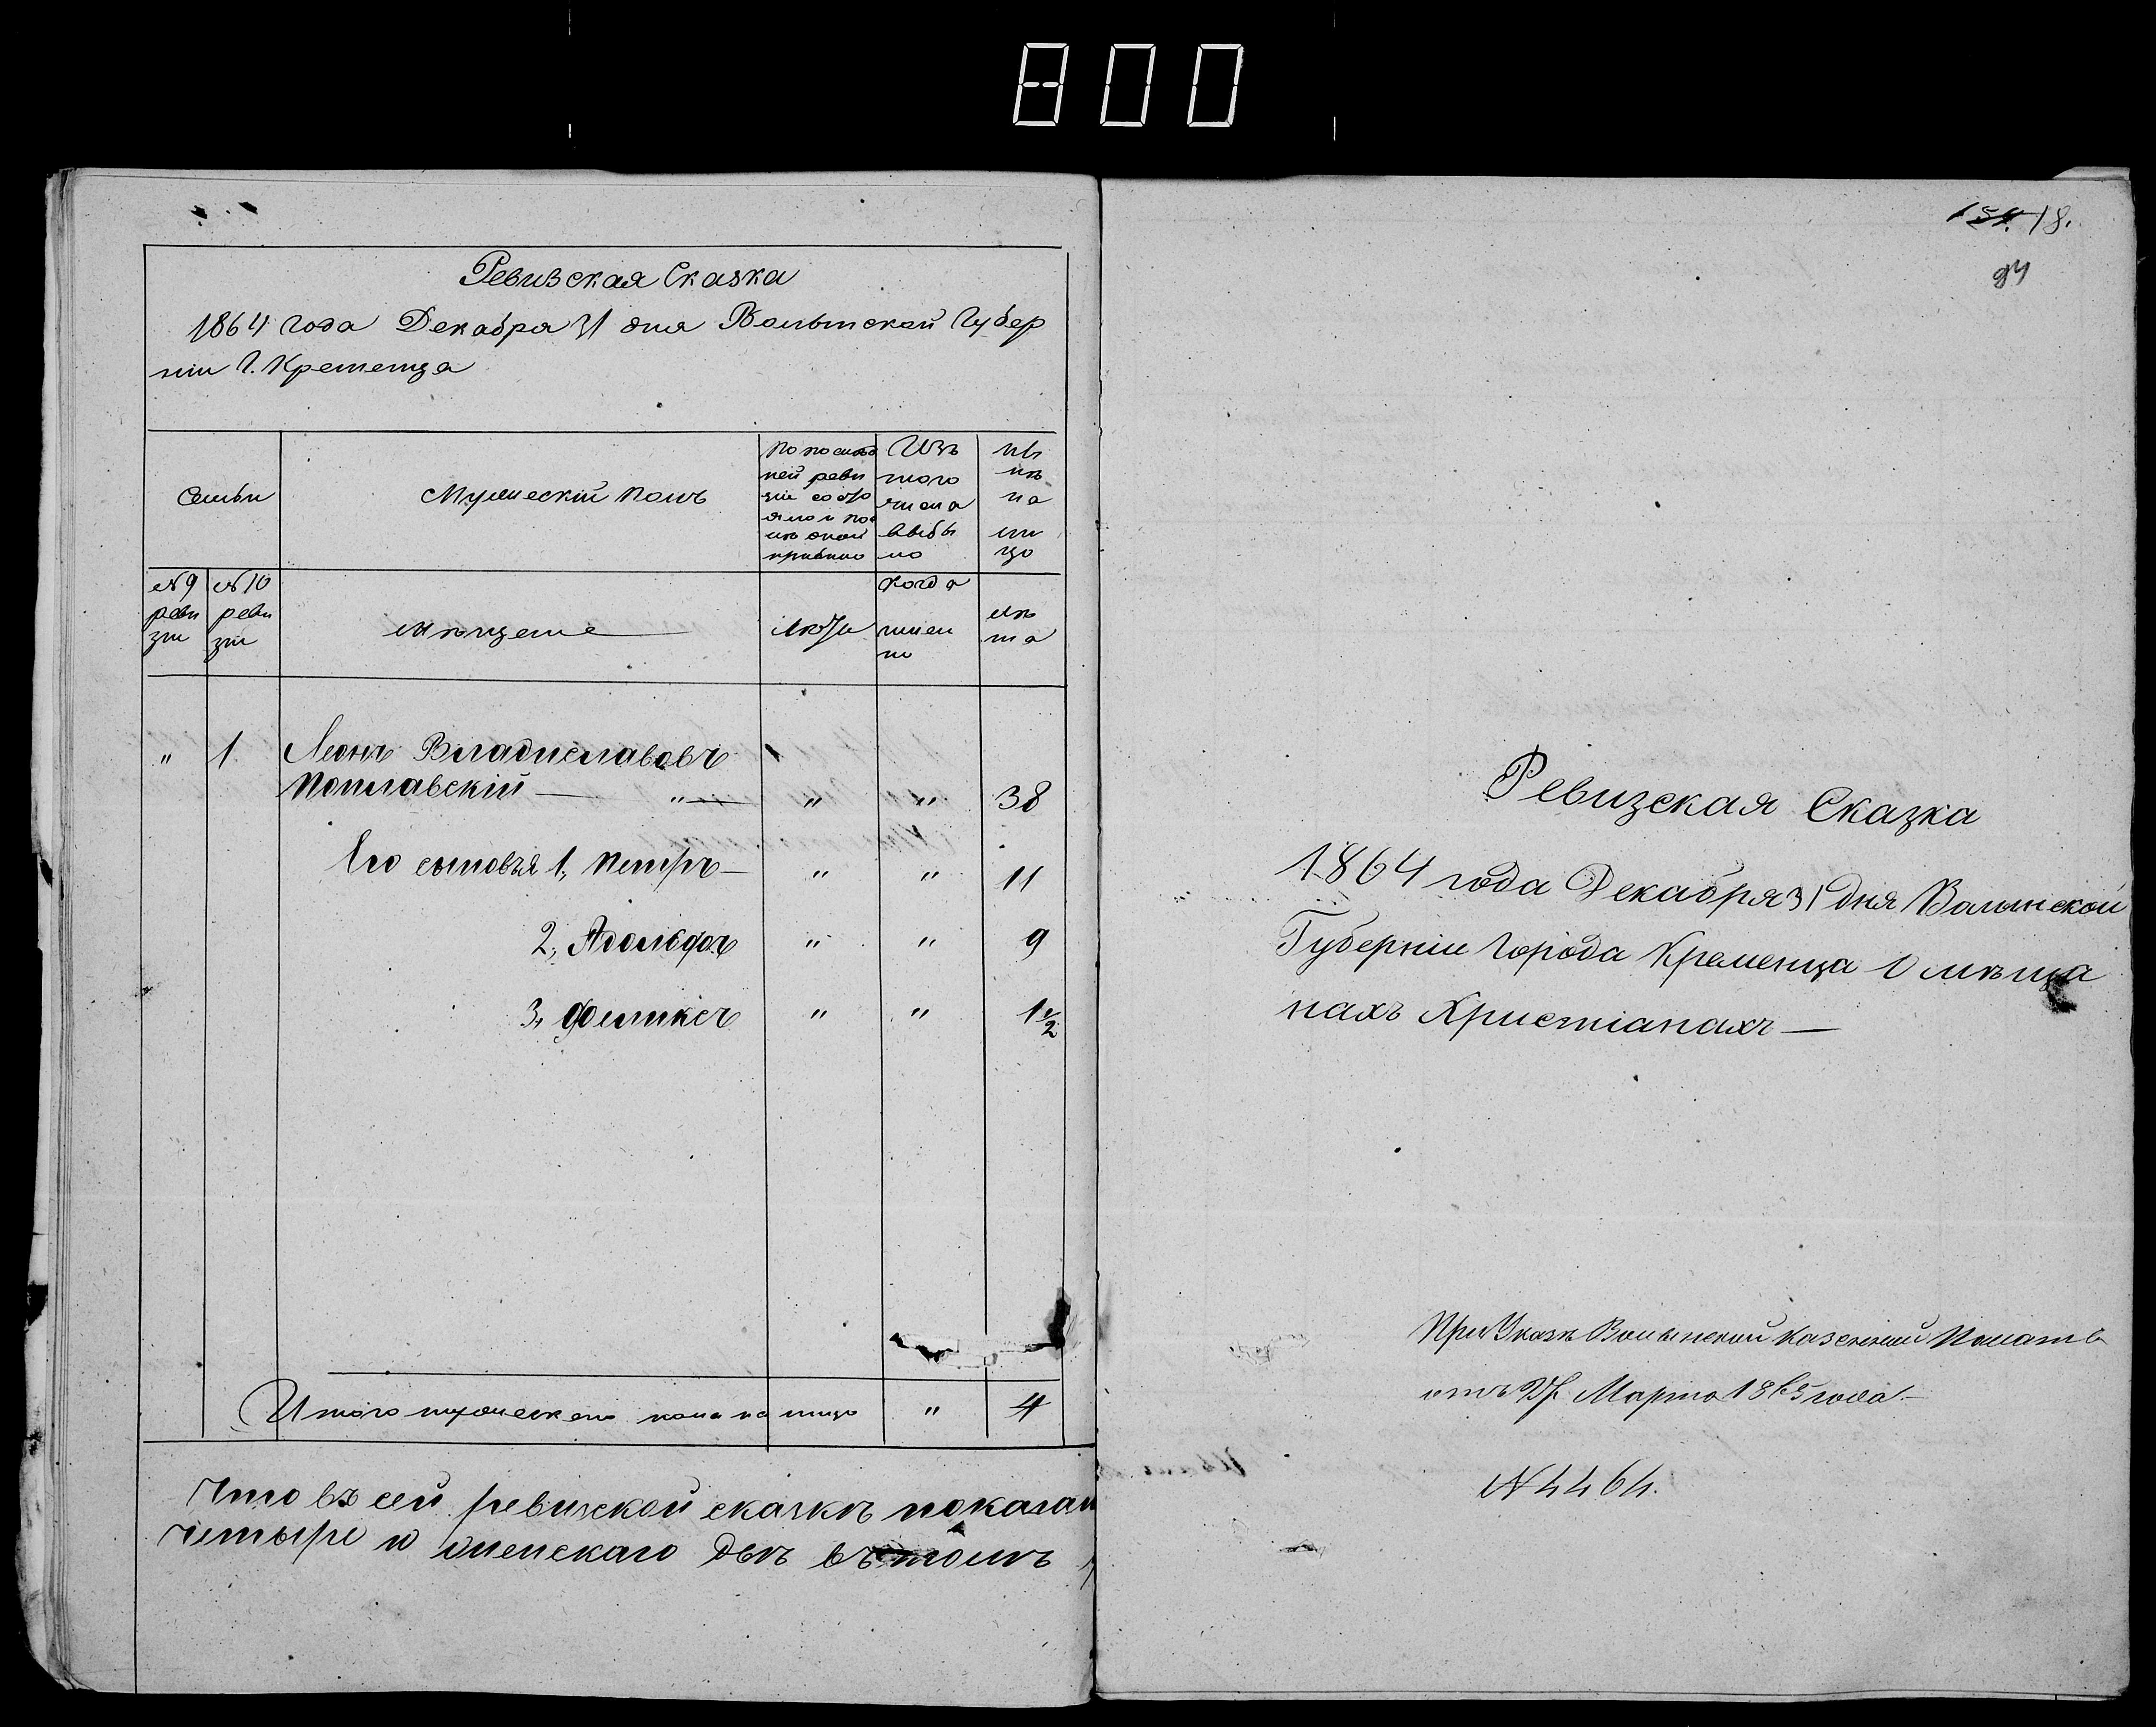 800
Ревизская Сказка
1864 года Декабря 31 дня Волынской Губер
ніи Г. Кременца
Семьи
Мужескій полъ
По послѣд
ней реви
зіи состо
яло и по
слѣ оной
прибыло
Изъ
того
числа
выбы
ло
Ны
нѣ
на
ли
цо
№ 9
реви
зіи
№ 10
реви
зіи
Мѣщане
Лѣта
Когда
имен
но
Лѣ
та
" 1. Леонъ Владиславовъ
Поплавскій — " — " " 38
Его сыновья 1, Петръ — " " 11
2, Адольфъ " " 9
3, Феликсъ " " 1 1/2
Итого мужескаго пола на лицо " 4
Что въ сей ревизской сказкѣ показан
четыре и женскаго двѣ въ томъ
154. 18.
94
Ревизская Сказка
1864 года Декабря 31 дня Волынской
Губерніи Города Кременца О мѣща
нахъ Христіанахъ —
При Указѣ Волынской Казенной Палаты
отъ Марта 1865 года. —
№ 4464.